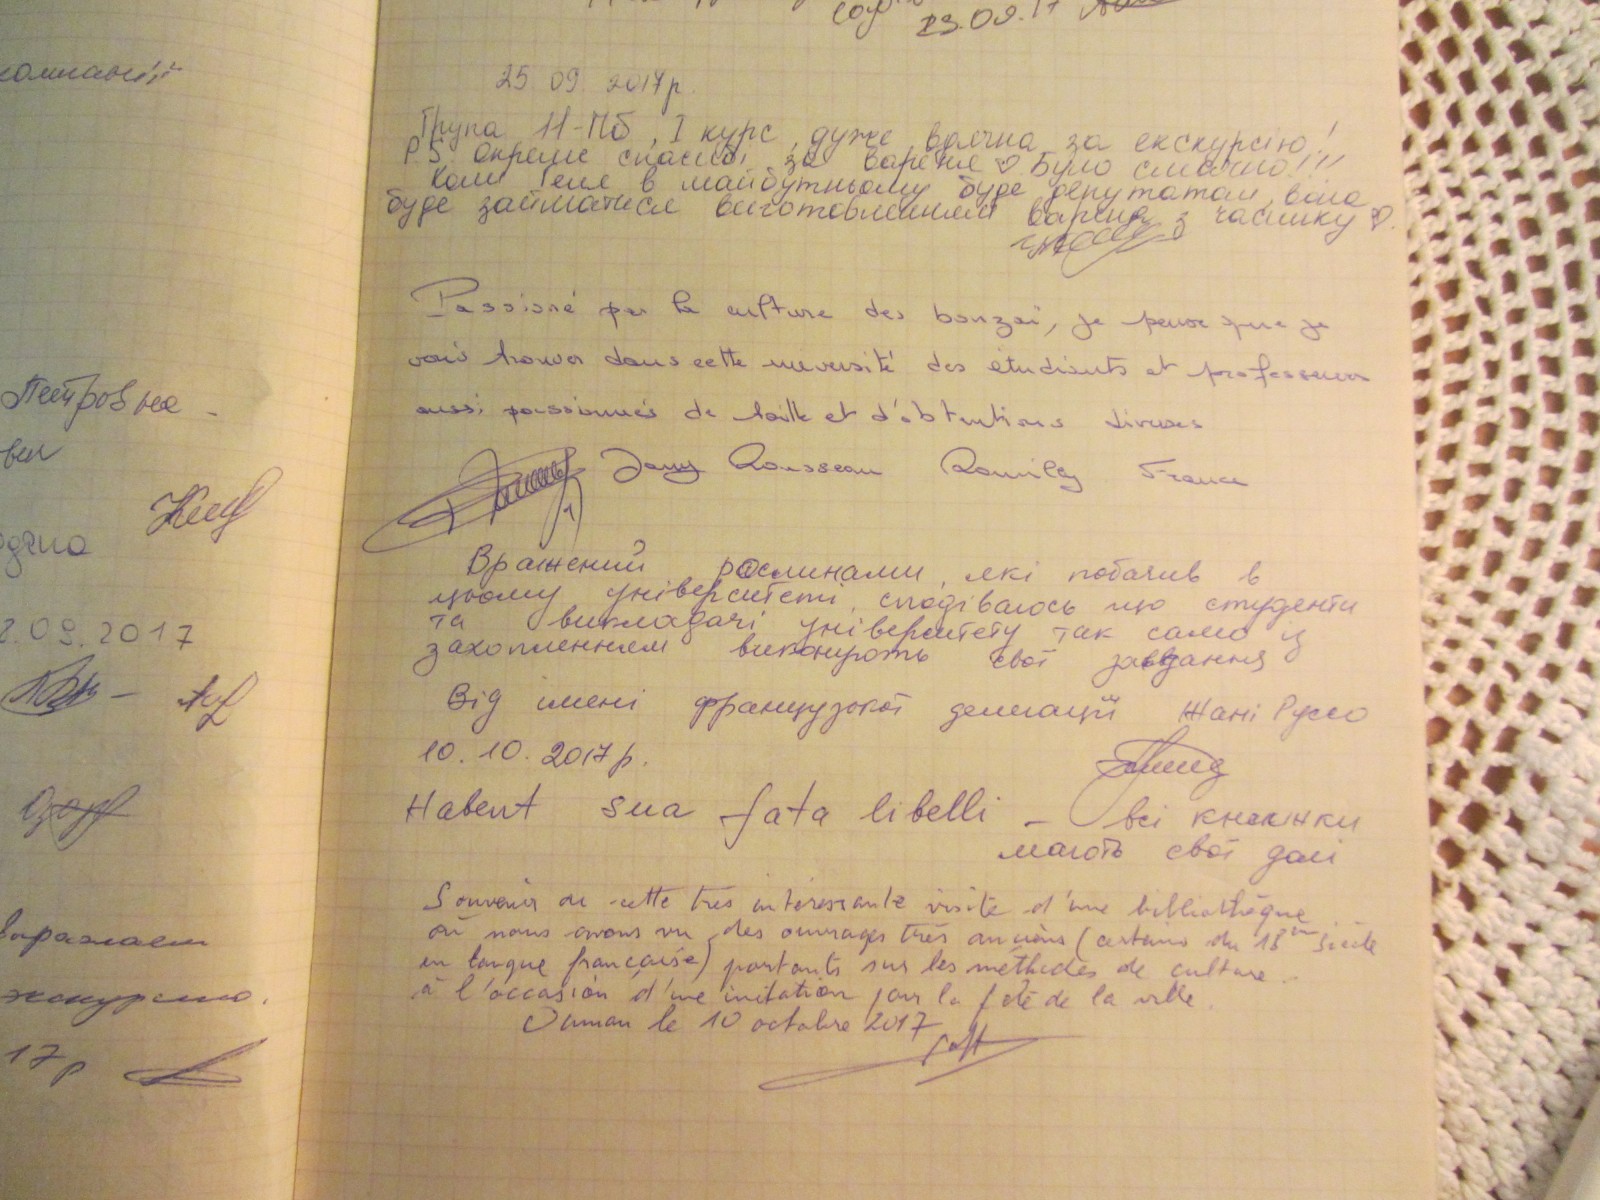 компанії
Петровна
2.09.2017
экскурсию.
17р
23.09.17
25 09 2017р.
Група 11-Пб, I курс, дуже вдячна за екскурсію!
P.S. окреме спасибі за варення ♡ Було смачно!!!
Коли Геля в майбутньому буде депутатом, вона
буде займатися виготовленням варення з часнику ♡.
Passioné par la culture des bonzaï, je pense que je
vais trouver dans cette université des étudiants et professeurs
aussi passionnés de taille et d'obtentions diverses
Jany Rousseau Romilly France
Вражений рослинами, які побачив в
цьому університеті, сподіваюсь що студенти
та викладачі університету так само із
захопленням виконують свої завдання
Від імені французької делегації Жані Руссо
10.10.2017р.
Habent sua fata libelli – всі книжки
мають свої долі
Souvenir de cette très intéressante visite d'une bibliothèque
où nous avons vu des ouvrages très anciens (certains du 18ème siècle
en langue française) portants sur les méthodes de culture.
à l'occasion d'une invitation pour la fête de la ville.
Ouman le 10 octobre 2017